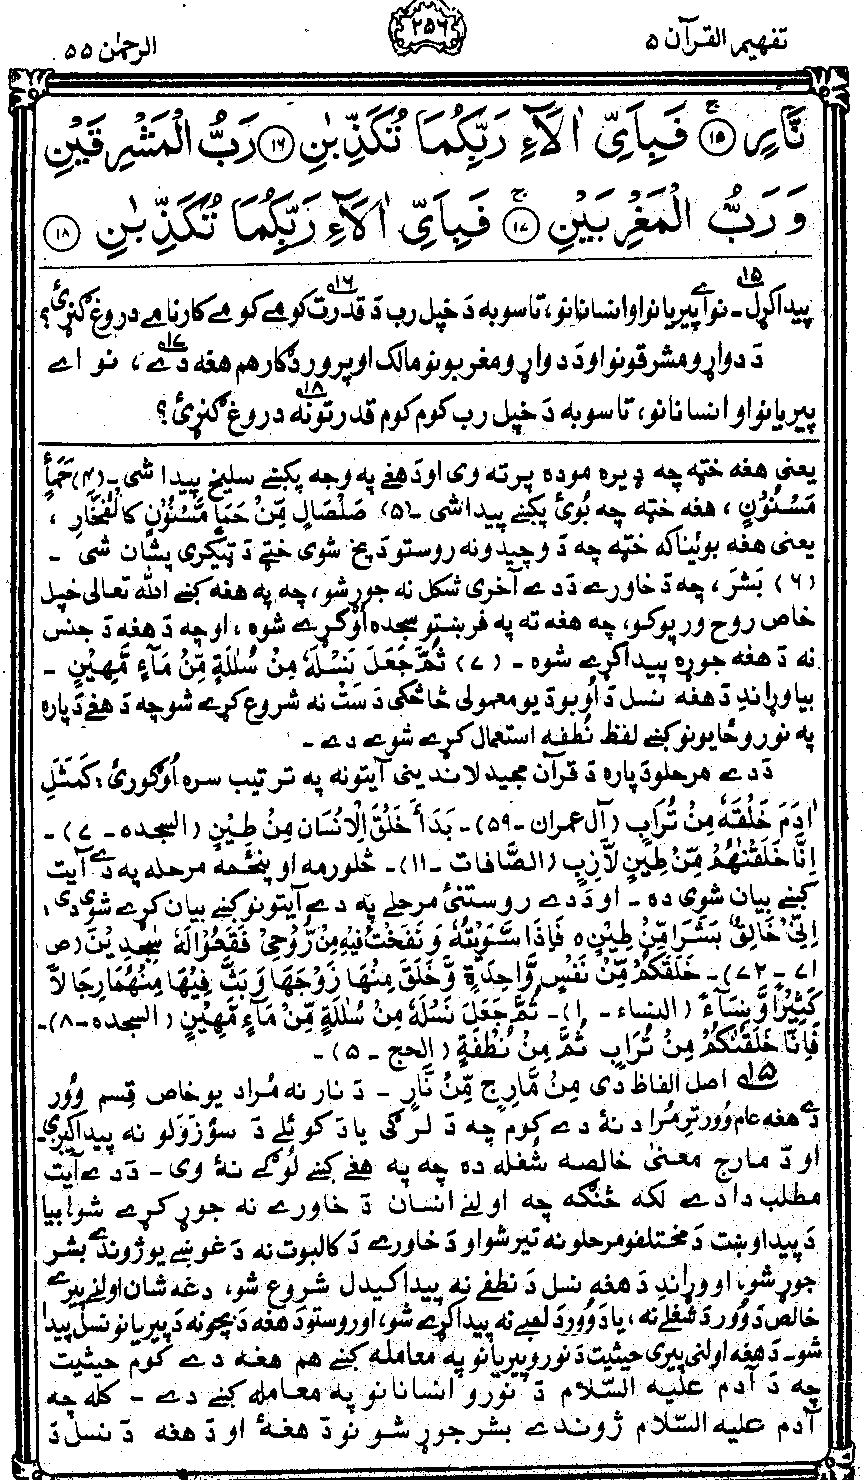 تفهیم القرآن ۵
۲۵۶
الرحمٰن ۵۵
نَّارٍ ۝۱۵ فَبِاَيِّ اٰلَآءِ رَبِّكُمَا تُكَذِّبٰنِ ۝۱۶ رَبُّ الْمَشْرِقَيْنِ
وَ رَبُّ الْمَغْرِبَيْنِ ۝۱۷ فَبِاَيِّ اٰلَآءِ رَبِّكُمَا تُكَذِّبٰنِ ۝۱۸
پيدا کړل ۱۵ـ نو اے پيريانو او انسانانو، تاسو به دَ خپل رب دَ قدرت ۱۶ کومے کومے کارنامے دروغ ګنړئ؟
دَ دواړو مشرقونو او دَ دواړو مغربونو مالک او پروردګار هم هغه دے ۱۷، نو اے
پيريانو او انسانانو، تاسو به دَ خپل رب کوم کوم قدرتونه ۱۸ دروغ ګنړئ؟
يعنی هغه خټه چه ډيره موده پرته وی او دَ هغے په وجه پکښے سليخ پيدا شی ـ (۴) حَمَأٍ
مَّسْنُوْنٍ ، هغه خټه چه بُوئ پکښے پيدا شی ـ (۵) صَلْصَالٍ مِّنْ حَمَأٍ مَّسْنُوْنٍ کَالْفَخَّارِ ،
يعنی هغه بوئيناکه خټه چه دَ وچيدو نه روستو دَ پخ شوی خټے دَ ټيکری پشان شی ـ
(۶) بَشَرَ ، چه دَ خاورے دَ دے آخری شکل نه جوړ شو، چه په هغه کښے الله تعالی خپل
خاص روح ورپوکو، چه هغه ته په فرښتو سجده اوکړے شوه، او چه دَ هغه دَ جنس
نه دَ هغه جوړه پيدا کړے شوه ـ (۷) ثُمَّ جَعَلَ نَسْلَهٗ مِنْ سُلٰلَةٍ مِّنْ مَّآءٍ مَّهِيْنٍ ـ
بيا وړاندِ دَ هغه نسل دَ اوبو دَ يو معمولی څاڅکی دَ ست نه شروع کړے شو چه دَ هغے دَ پاره
په نورو ځايونو کښے لفظ نُطفه استعمال کړے شوے دے ـ
دَ دے مرحلو دَ پاره دَ قرآن مجيد لاندينی آيتونه په ترتيب سره اوګورئ: کَمَثَلِ
اٰدَمَ خَلَقَهٗ مِنْ تُرَابٍ (آل عمران ـ ۵۹) ـ بَدَأَ خَلْقَ الْاِنْسَانِ مِنْ طِيْنٍ (السجده ـ ۷) ـ
اِنَّا خَلَقْنٰهُمْ مِّنْ طِيْنٍ لَّازِبٍ (الصَّافات ـ ۱۱) ـ څلورمه او پنځمه مرحله په دے آيت
کښے بيان شوی ده ـ او دَ دے روستنئ مرحلے په دے آيتونو کښے بيان کړے شوی دی :
اِنِّیْ خَالِقٌۢ بَشَرًا مِّنْ طِيْنٍ ہ فَاِذَا سَوَّيْتُهٗ وَ نَفَخْتُ فِيْهِ مِنْ رُّوْحِیْ فَقَعُوْا لَهٗ سٰجِدِيْنَ (ص
۷۱ ـ ۷۲) ـ خَلَقَكُمْ مِّنْ نَّفْسٍ وَّاحِدَةٍ وَّخَلَقَ مِنْهَا زَوْجَهَا وَ بَثَّ مِنْهُمَا رِجَالًا
كَثِيْرًا وَّنِسَآءً (النساء ـ ۱) ـ ثُمَّ جَعَلَ نَسْلَهٗ مِنْ سُلٰلَةٍ مِّنْ مَّآءٍ مَّهِيْنٍ (السجده ـ ۸) ـ
فَاِنَّا خَلَقْنٰكُمْ مِنْ تُرَابٍ ثُمَّ مِنْ نُّطْفَةٍ (الحج ـ ۵) ـ
۱۵ اصل الفاظ دی مِنْ مَّارِجٍ مِّنْ نَّارٍ ـ دَ نار نه مُراد يو خاص قِسم وُور
دے هغه عام وُور ترمُراد نهٔ دے کوم چه دَ لرګی يا دَ کوئلے دَ سوزَولو نه پيدا کيږی ـ
او دَ مارج معنیٰ خالصه شُغله ده چه په هغے کښے لُوګے نهٔ وی ـ دَ دے آيت
مطلب دا دے لکه څنګه چه اولنے انسان دَ خاورے نه جوړ کړے شو، بيا
دَ پيداوښت دَ مختلفو مرحلو نه تير شو او دَ خاورے دَ کالبوت نه دَ غوښے يو ژوندے بشر
جوړ شو، او وړاندِ دَ هغه نسل دَ نطفے نه پيدا کيدل شروع شو، دغه شان اولنے پيرے
خالص دَ وُور دَ شُغلے نه، يا دَ وُور دَ لمبے نه پيدا کړے شو، او روستو دَ هغه دَ بچو نه دَ پيريانو نسل پيدا
شو ـ دَ هغه اولنی پيری حيثيت دَ نورو پيريانو په معامله کښے هم هغه دے کوم حيثيت
چه دَ آدم عليه السّلام دَ نورو انسانانو په معامله کښے دے ـ کله چه
آدم عليه السّلام ژوندے بشر جوړ شو نو دَ هغهٔ او دَ هغه دَ نسل دَ